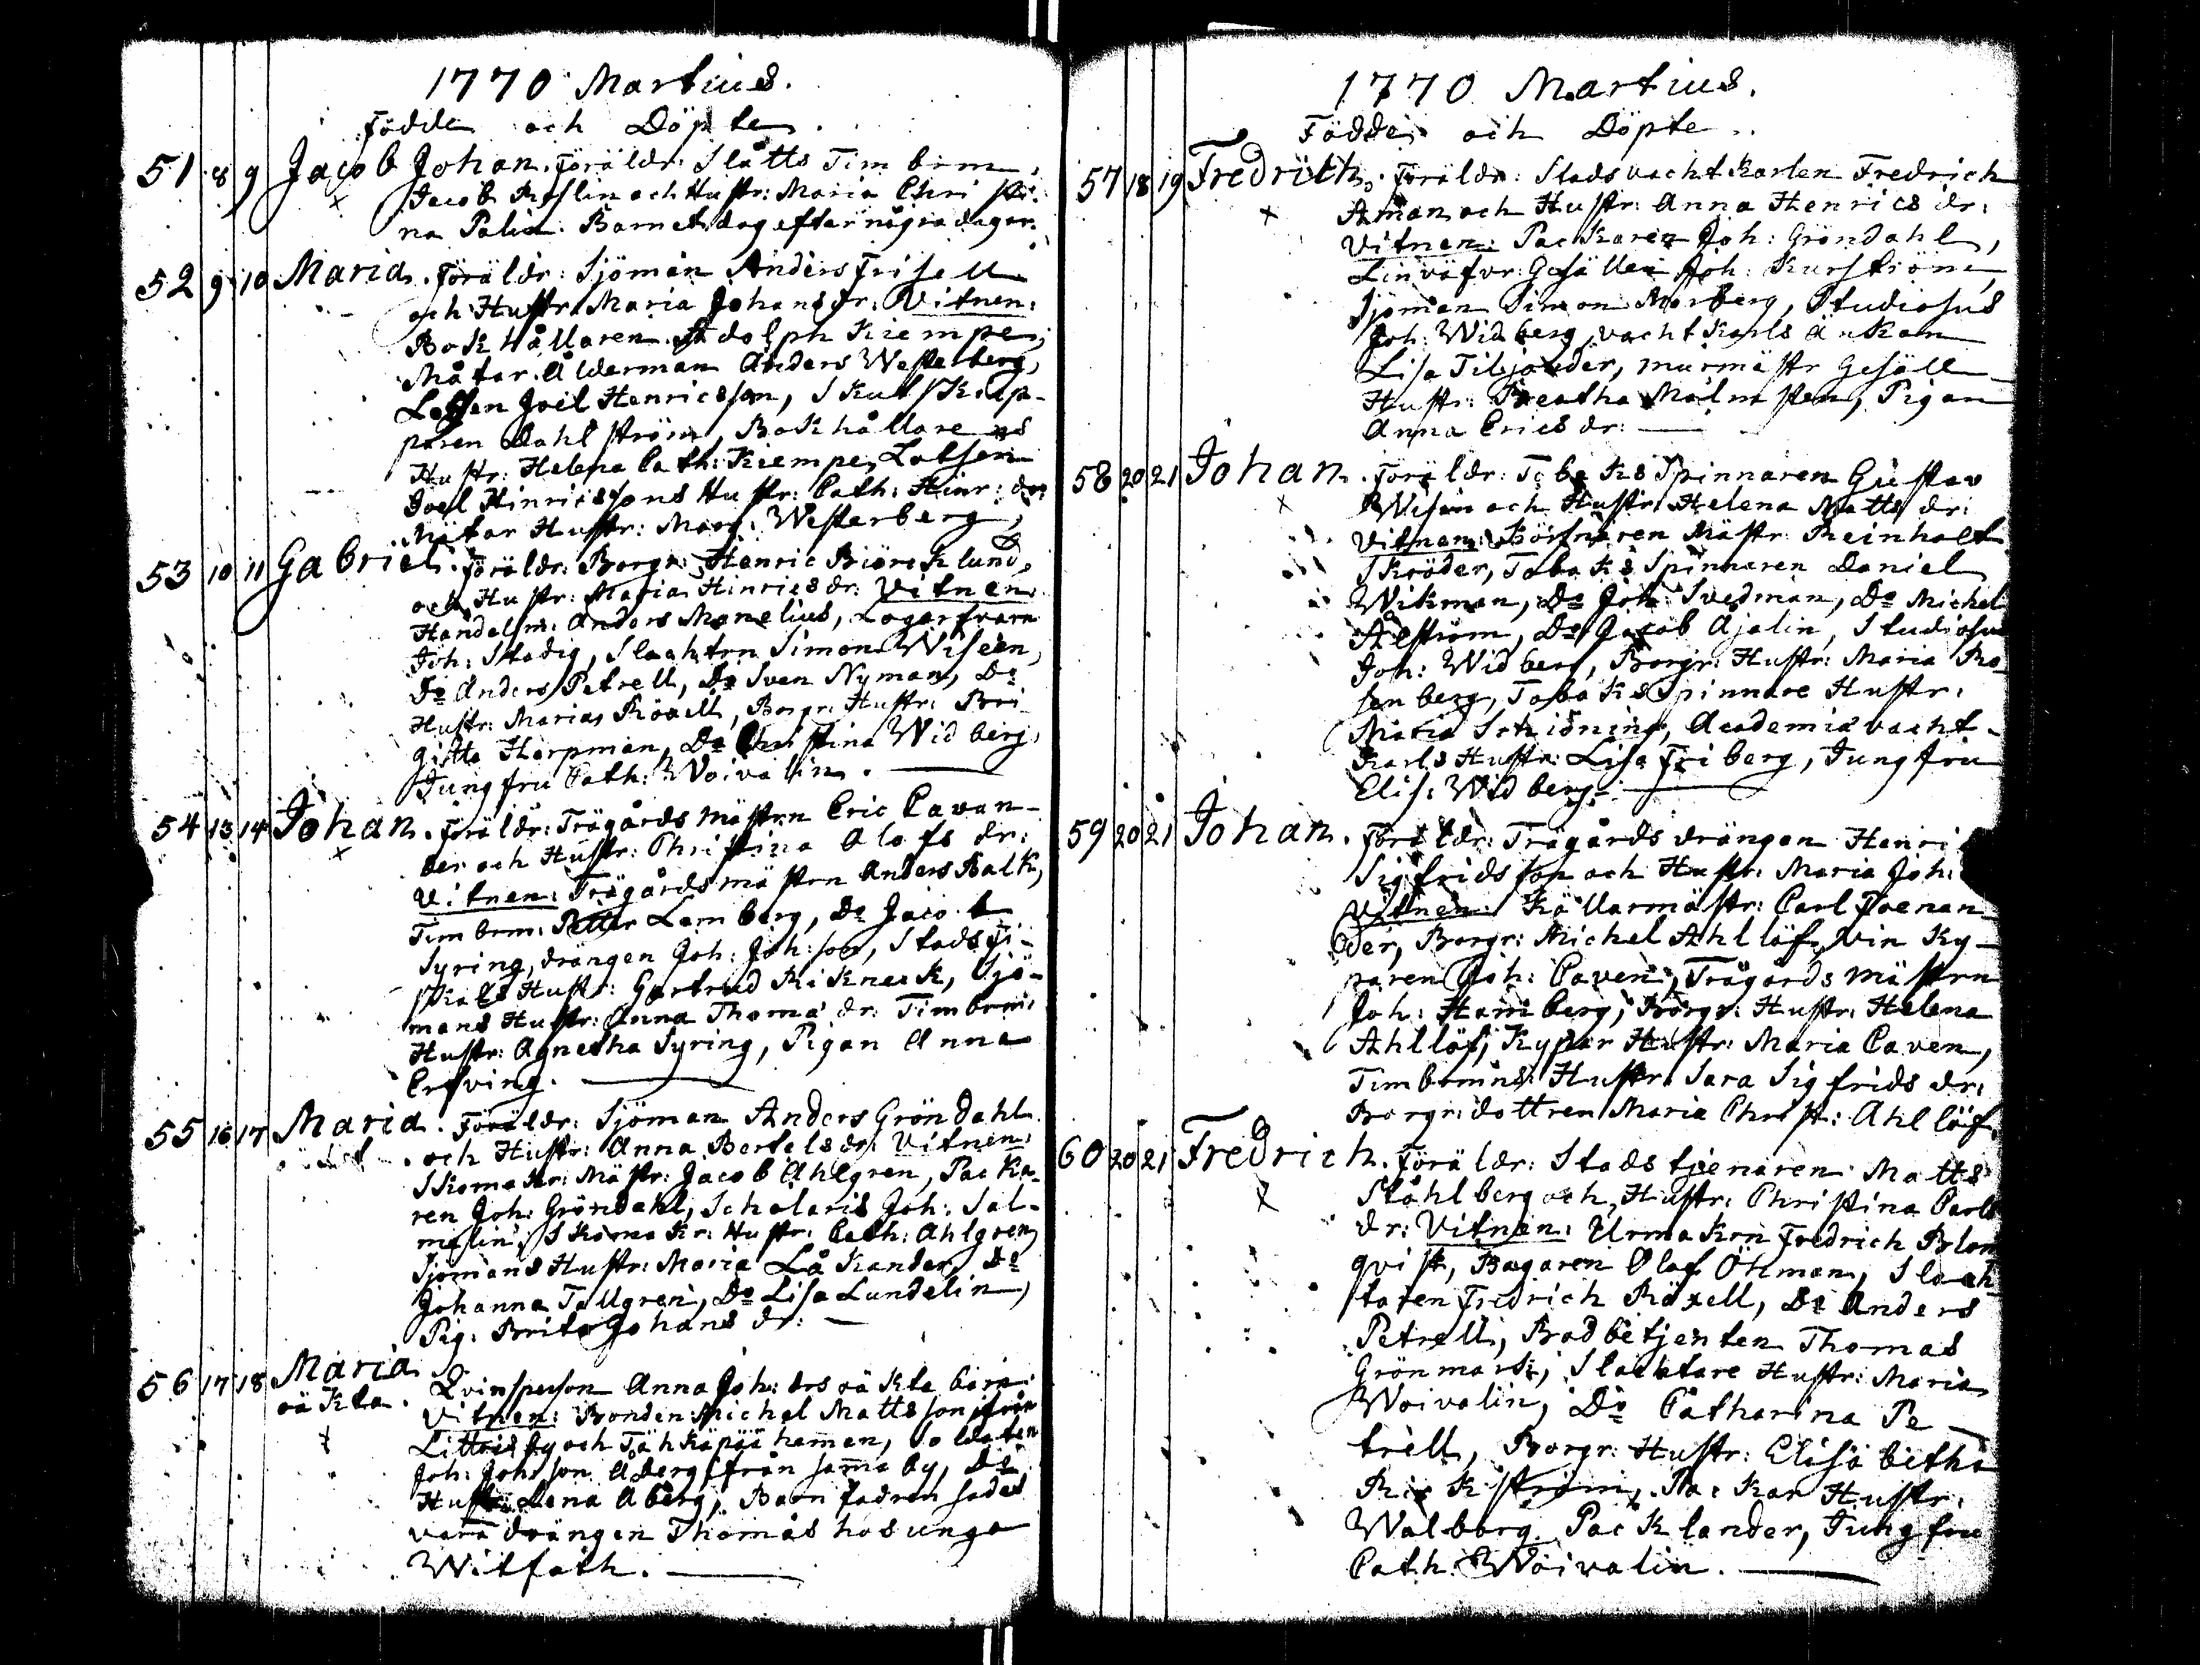 1770 Martius.
Födde och Döpte.
51 8 9 Jacob Johan. Föräldr: Slåtts Timbrm,
Jacob Roslin och Hustr: Maria Christi-
na Palin. Barnet dog efter några dagar.
52 9 10 Maria. Föräldr: Sjöman Anders Frisell
och Hustr: Maria Johansdr: Vitnen:
Bokhållaren Adolph Kiempe,
Måtar. Ålderman Anders Westerberg,
Lotsen Joel Henricsson, Skutskep-
paren Dahlström, Bokhållarens
Hustr: Helena Cath: Kiempe, Lotsen
Joel Hinricssons Hustr: Cath: Hinr: dr:
Mätar Hustr: Marg: Westerberg,
53 10 11 Gabriel. Föräldr: Borgr: Henric Biörcklund,
och Hustr: Maria Hinricsdr: Vitnen
Handelsm: Anders Manelius, Logarfvarn
Joh: Stadig, Slachtrn Simon Wiseen,
Do Anders Petrell, Do Sven Nyman, Do
Hustr: Maria Röxell, Borgr: Hustr: Bri
gitta Harpman, Do Christina Widberg,
Jungfru Cath: Woivalin.
54 13 14 Johan. Föräldr: Trägårds mästrn Eric Cavan-
der och Hustr: Christina Alofs dr:
Vitnen: Trägårdsmästrn Anders Balk,
Timbrm: Petter Lemberg, Do Jacob
Syring, drängen Joh: Joh:son, Stadsfi-
skals Hustr: Gertrud Rikneck, Sjö-
mans Hustr: Anna Thomæ dr: Timbrm:
Hustr: Agnetha Syring, Pigan Anna
Erfving.
55 16 17 Maria. Föräldr: Sjöman Anders Gröndahl
och Hustr: Anna Bertelsdr: Vitnen:
Skomakr: Mästr: Jacob Ahlgren, Packa-
ren Joh: Gröndahl, Scholaris Joh: Sal-
melin, Skomakr: Hustr: Cath: Ahlgren
Sjömans Hustr: Maria Låkander, Do
Johanna Tallgren, Do Lisa Lundelin,
Pig: Brita Johans dr:
56 17 18 Maria Qvinsperson Anna Joh: drs oäkta barn
oäkta. Vitnen: Bonden Michel Mattsson från
Littois by och Tähkäpää hemman, Soldaten
Joh: Johsson Åberg från samma by, Do
Hustr: Lena Åberg, Barn fadren sades
vara drängen Thomas hos unga
Witfoth.
1770 Martius.
Födde och Döpte.
57 18 19 Fredrich. Föräldr: Stadsvachtkarlen Fredrich
Åman och Hustr: Anna Henrics dr:
Vitnen: Packaren Joh: Gröndahl,
Linväfvr: Gesällen Joh: Kurström,
Sjöman Simon Morberg, Studiosus
Joh: Widberg, vachtkarls änkan
Lisa Tiljander, murmästr Gesäll
Hustr: Beatha Malmsten, Pigan
Anna Ericsdr:
58 20 21 Johan. Föräldr: Tobaks Spinnaren Gustav
Wisin och Hustr: Helena Matts dr:
Vitnen: Körsnären Mästr: Reinholt
Skröder, Tobaks Spinnaren Daniel
Wikman, Do Joh: Svedman, Do Michel
Åström, Do Jacob Ajalin, Studiosus
Joh: Widberg, Borgr: Hustr: Maria Ro
senberg, Tobaks Spinnare Hustr:
Maria Schiöning, Academia vacht-
karls Hustr: Lisa Friberg, Jungfru
Elis: Widberg.
59 20 21 Johan. Föräldr: Trägårds drängen Henri
Sigfridsson och Hustr: Maria Joh:
Vitnen: Källarmästr: Carl Foenan
der, Borgr: Michel Ahllöf, Vin Ky-
paren Joh: Caven, Trägårds mästrn
Joh: Hamberg, Borgr: Hustr: Helena
Ahllöf, Kypar Hustr: Maria Caven,
Timbrmns Hustr: Sara Sigfrids dr:
Borgr: dottren Maria Christ: Ahllöf.
60 20 21 Fredrich. Föräldr: Stadstjenaren Matts
Ståhlberg och Hustr: Christina Carls
dr: Vitnen: Urmakrn Fredrich Blom
qvist, Bagaren Olof Öhman, Slach
taren Fredrich Röxell, Do Anders
Petrell, Badbetjenten Thomas
Grönmark, Slachtare Hustr: Maria
Woivalin, Do Catharina Pe
trell, Borgr: Hustr: Elisabetha
Rickström, Packar Hustr:
Walborg Packlander, Jungfru
Cath: Woivalin.